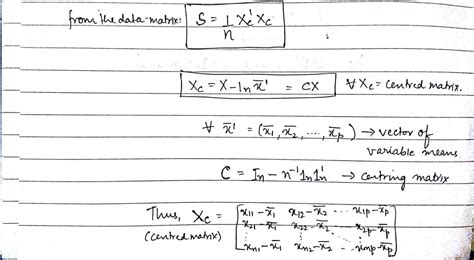 from the data-matrix: S = 1/n Xc' Xc
Xc = X - 1n x̄' = CX ∀ Xc = Centred matrix.
∀ x̄' = (x̄1, x̄2, ...., x̄p) → vector of
variable means
C = In - n⁻¹ 1n 1n' → centring matrix
Thus, Xc = [x11 - x̄1 x12 - x̄2 ... x1p - x̄p
(centred matrix) x21 - x̄1 x22 - x̄2 ... x2p - x̄p
⋮ ⋮ ⋮
xn1 - x̄1 xn2 - x̄2 ... xnp - x̄p]